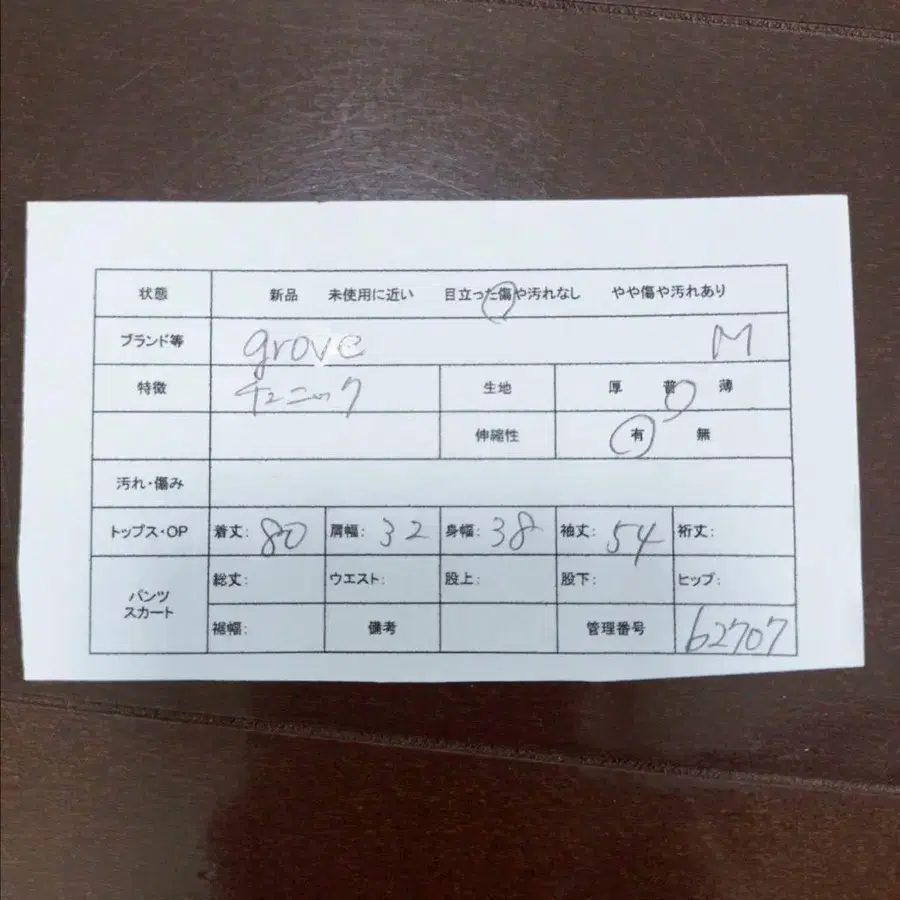 状態 新品 未使用に近い 目立った傷や汚れなし やや傷や汚れあり
ブランド等 grove M
特徴 チュニック 生地 厚 普 薄
伸縮性 有 無
汚れ・傷み
トップス・OP 着丈: 80 肩幅: 32 身幅: 38 袖丈: 54 裄丈:
パンツ スカート 総丈: ウエスト: 股上: 股下: ヒップ:
裾幅: 備考 管理番号 62707